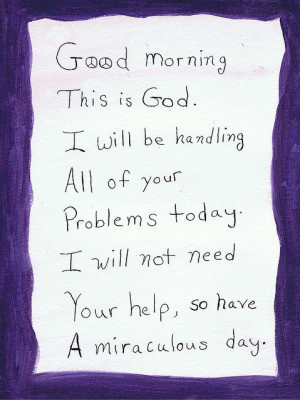 Good morning
This is God.
I will be handling
All of your
Problems today.
I will not need
Your help, so have
A miraculous day.